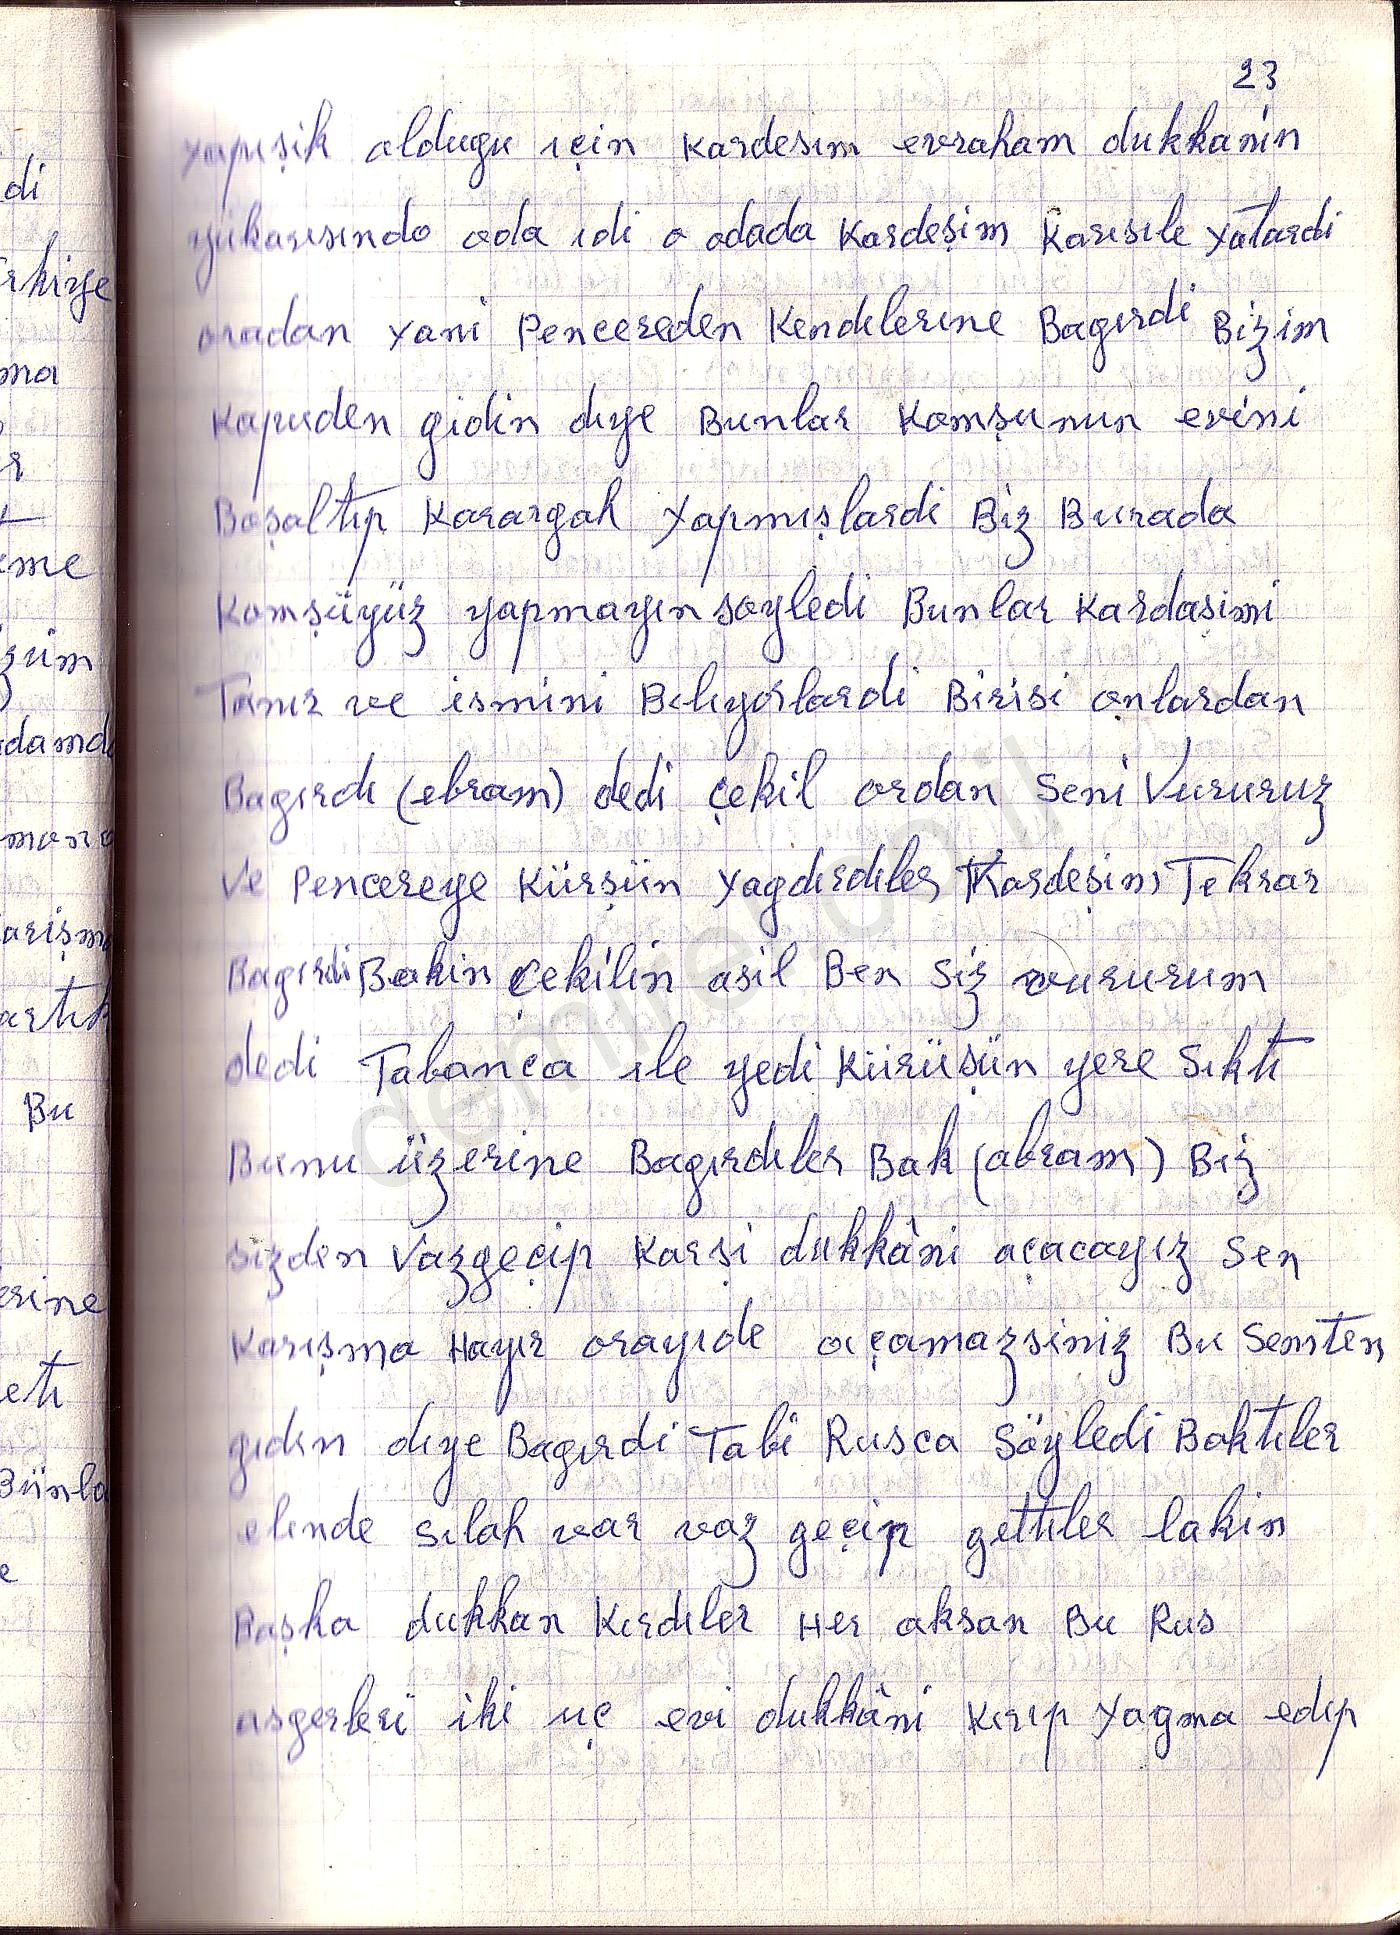 23
di
rkiye
ma
r
eme
züm
damda
arişm
artık
Bu
erine
etı
Bünla
e
yapışik oldugu için Kardesım evraham dukkanin
yukarısındo oda ıdi o odada Kardeşim Karısıle yatardi
oradan yani Pencereden Kendılerıne Bagırdi Bizim
Kapıden gidin dıye Bunlar Komşunun evini
Boşaltıp Karargah yapmışlardi Biz Burada
Komşüyüz yapmayın soyledi Bunlar Kardaşimi
Tanır ve ismini Bılıyorlardi Birisi onlardan
Bagırdı (ebram) dedi çekil ordan Seni Vururuz
Ve Pencereye Kürşün yagdırdıler Kardeşim Tekrar
Bagırdi Bakin Çekilin asil Ben Siz vururum
dedi Tabanca ıle yedi Kürüşün yere Sıktı
Bunu üzerine Bagırdıler Bak (abram) Biz
sizden Vazgeçip Karşi dukkâni açacayız Sen
Karışma Hayır orayıde açamazsiniz Bu Semten
gıdın dıye Bagırdi Tabi Rusca Söyledi Baktıler
elınde Sılah var vaz geçip gettıler lakin
Başka dukkan Kırdıler Her aksan Bu Rus
asgerleri iki uç evi dukkâni Kırıp Yagma edıp
demirel.co.il